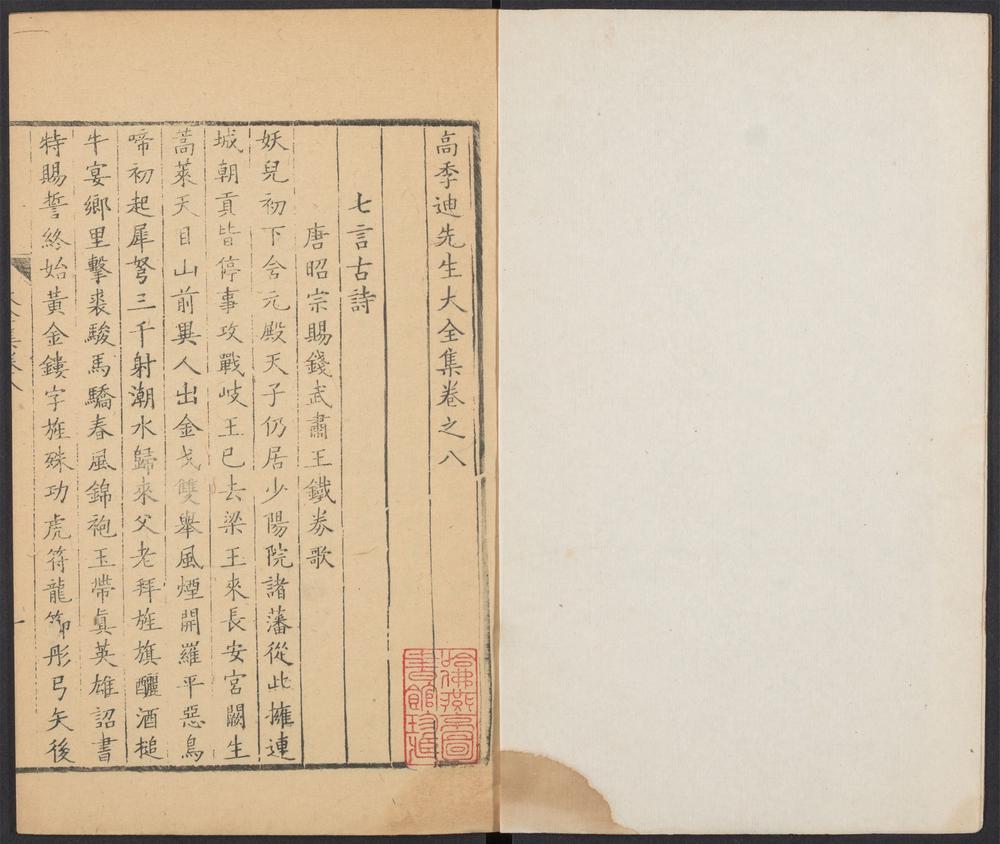 高季迪先生大全集卷之八
七言古詩
唐昭宗賜錢武肅王鐵券歌
妖兒初下含元殿天子仍居少陽院諸藩從此擁連
城朝貢皆停事攻戰岐王已去梁王來長安宮闕生
蒿萊天目山前異人出金戈雙舉風煙開羅平惡鳥
啼初起犀弩三千射潮水歸來父老拜旌旗釃酒搥
牛宴鄉里擊裘駿馬驕春風錦袍玉帶眞英雄詔書
特賜誓終始黃金鏤字旌殊功虎符龍節彤弓矢後
哈佛燕京圖
書館珍藏